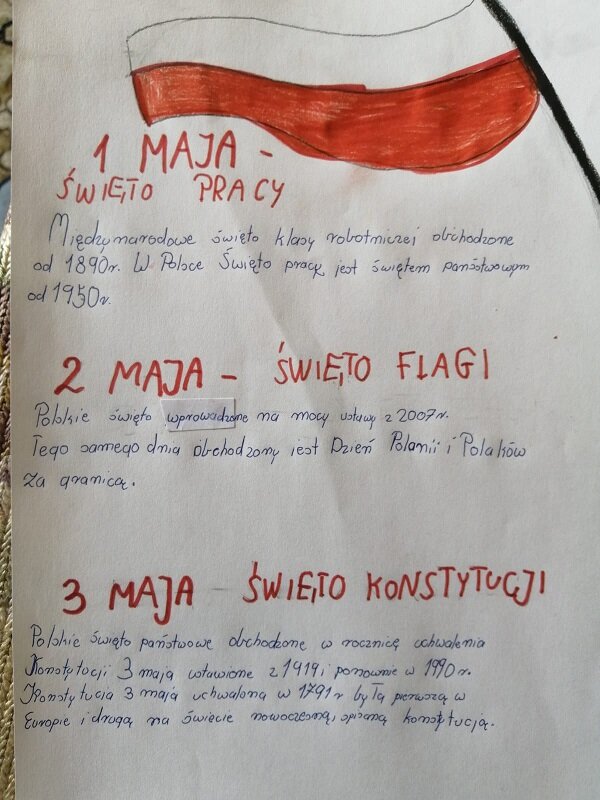 1 MAJA -
ŚWIĘTO PRACY
Międzynarodowe święto klasy robotniczej obchodzone
od 1890r. W Polsce Święto pracy jest świętem państwowym
od 1950r.
2 MAJA - ŚWIĘTO FLAGI
Polskie święto wprowadzone na mocy ustawy z 2007r.
Tego samego dnia obchodzony jest Dzień Polonii i Polaków
za granicą.
3 MAJA - ŚWIĘTO KONSTYTUCJI
Polskie święto państwowe obchodzone w rocznicę uchwalenia
Konstytucji 3 maja ustawione z 1919 i ponownie w 1990r.
Konstytucja 3 maja uchwalona w 1791r była pierwszą w
Europie i drugą na świecie nowoczesną, spisaną konstytucją.